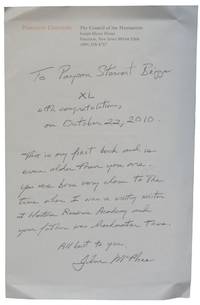 Princeton University
The Council of the Humanities
Joseph Henry House
Princeton, New Jersey 08544
To Payson Stewart
XL
with congratulations,
on October 22, 2010.
This is my first book and is
even older than you are.
You were born very close to the
time when I was a visiting writer
Western Reserve Academy and
your father was Headmaster there.
All best to you,
John McPhee